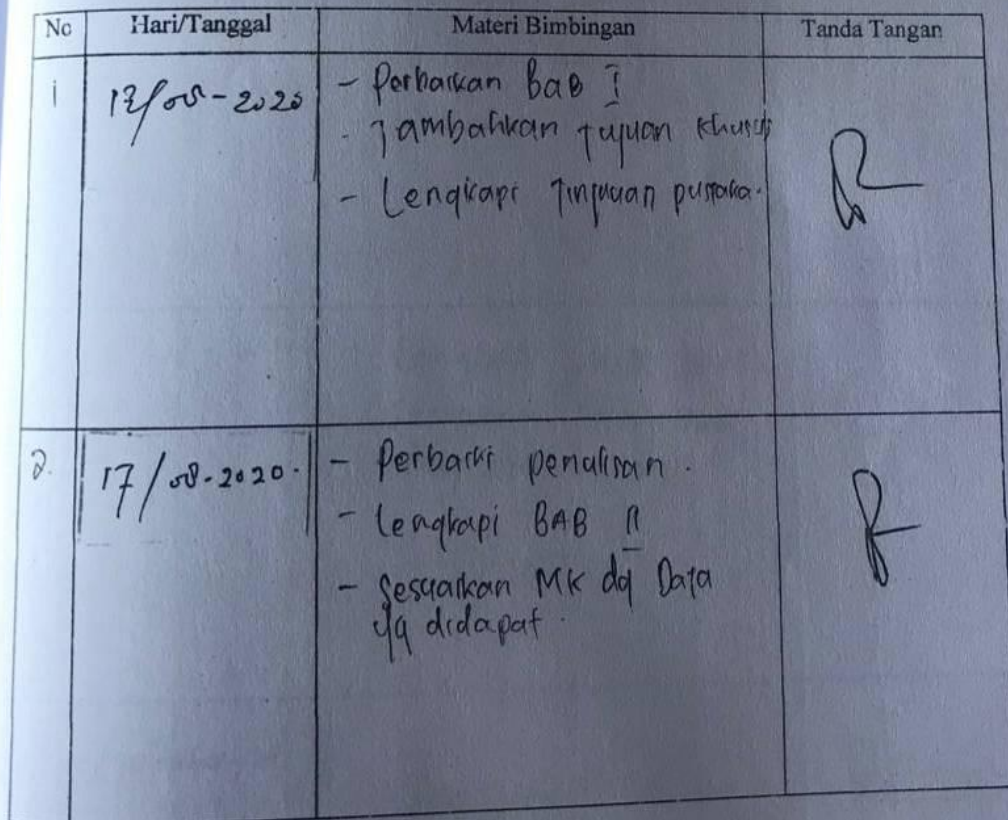 No Hari/Tanggal Materi Bimbingan Tanda Tangan
1 12/08-2020 - Perbaikan BaB I
- Tambahkan tujuan khusus
- Lengkapi Tinjauan pustaka.
2. 17/08-2020. - Perbaiki penulisan.
- lengkapi BAB II
- Sesuaikan MK dg Data
yg didapat.